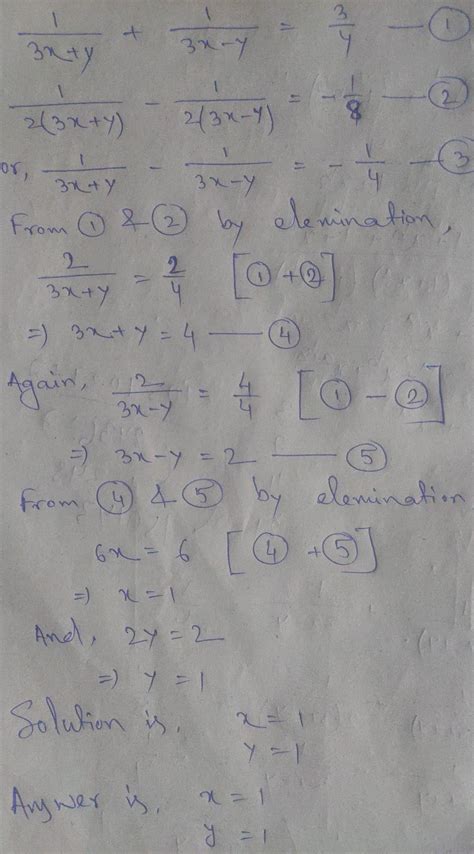 1/(3x+y) + 1/(3x-y) = 3/4 — ①
1/(2(3x+y)) - 1/(2(3x-y)) = -1/8 — ②
or, 1/(3x+y) - 1/(3x-y) = -1/4 — ③
From ① & ② by elemination,
2/(3x+y) = 2/4 [① + ②]
⇒ 3x+y = 4 — ④
Again, 2/(3x-y) = 4/4 [① - ②]
⇒ 3x-y = 2 — ⑤
From ④ & ⑤ by elemination
6x = 6 [④ + ⑤]
⇒ x = 1
And, 2y = 2
⇒ y = 1
Solution is, x = 1
y = 1
Answer is, x = 1
y = 1